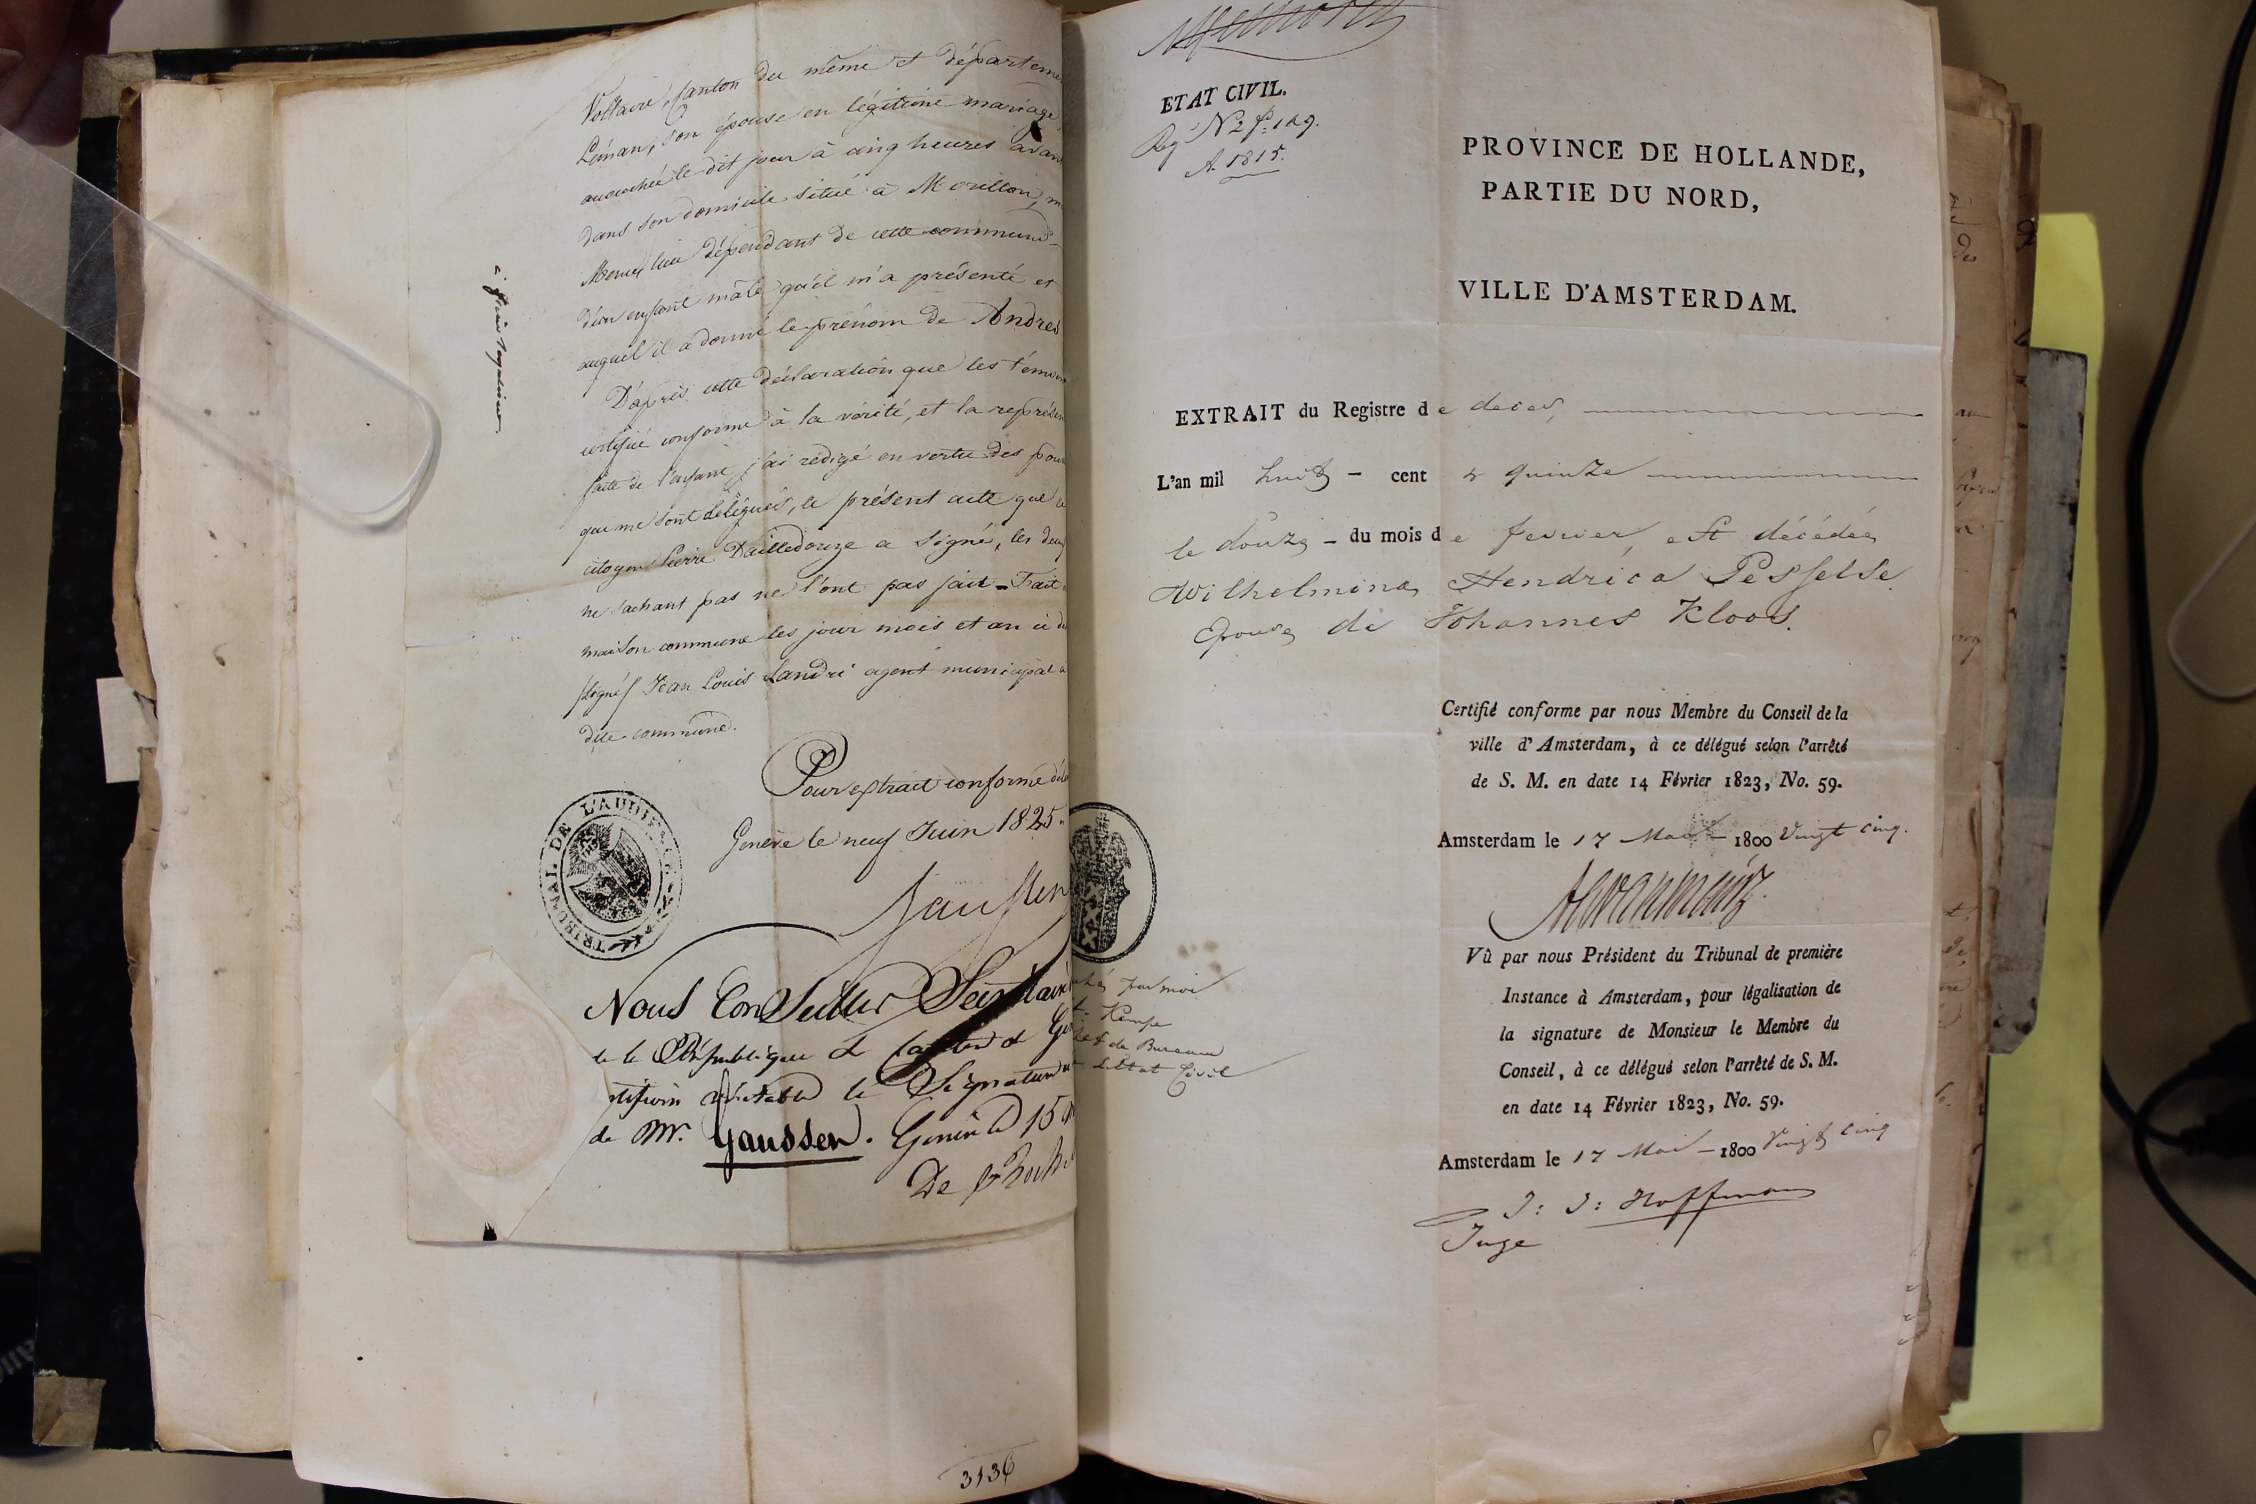 Voltaire, Canton du même et départeme
Léman, son épouse en légitime mariage,
accouchée le dit jour à cinq heures avan
dans son domicile situé à Morillon,
lieu dépendant de cette commune
d'un enfant mâle qu'il m'a présenté et
auquel il a donné le prénom de André
D'après cette déclaration que les témoin
certifié conforme à la vérité, et la représen
faite de l'enfant, j'ai rédigé en vertu des pouv
qui me sont délégués, le présent acte que le
citoyen Pierre Dailledouze a signé, les deux
ne sachant pas ne l'ont pas fait - Fait
maison commune les jour mois et an ci de
signé Jean Louis Landri agent municipal
dite commune.
Pour extrait conforme
Genève le neuf Juin 1825.
TRIBUNAL DE L'AUDIENCE
Nous Conseiller Secrétaire
de la République et Canton de Ge
véritable la Signature
de Mr. Gaussen. Genève le 15
3136
ETAT CIVIL.
Reg. N 2 f. 149.
A. 1815.
PROVINCE DE HOLLANDE,
PARTIE DU NORD,
VILLE D'AMSTERDAM.
EXTRAIT du Registre de deces,
L'an mil huit - cent & quinze
le douze - du mois de fevrier, est décédée
Wilhelmina Hendrica Pesselse.
Epouse de Johannes Kloos.
Certifié conforme par nous Membre du Conseil de la
ville d'Amsterdam, à ce délégué selon l'arrêté
de S. M. en date 14 Février 1823, No. 59.
Amsterdam le 17 Mai - 1800 Vingt cinq.
par moi
Kempe
de Bureau
Civil
Vû par nous Président du Tribunal de première
Instance à Amsterdam, pour légalisation de
la signature de Monsieur le Membre du
Conseil, à ce délégué selon l'arrêté de S. M.
en date 14 Février 1823, No. 59.
Amsterdam le 17 Mai - 1800 Vingt cinq
J: J: Hoffman
Juge